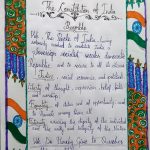 The Constitution of India
Preamble
We, The People of India, having
solemnly resolved to constitute India
Sovereign socialist secular democratic
Republic and to secure to all its citizens
Justice, social, economic and political
Liberty of thought, expression, belief, faith
and worship
Equality of status and of opportunity and to
promote among them all
Fraternity assuring the dignity of the individual
and the unity and integrity of the Nation
We Do Hereby Give To Ourselves